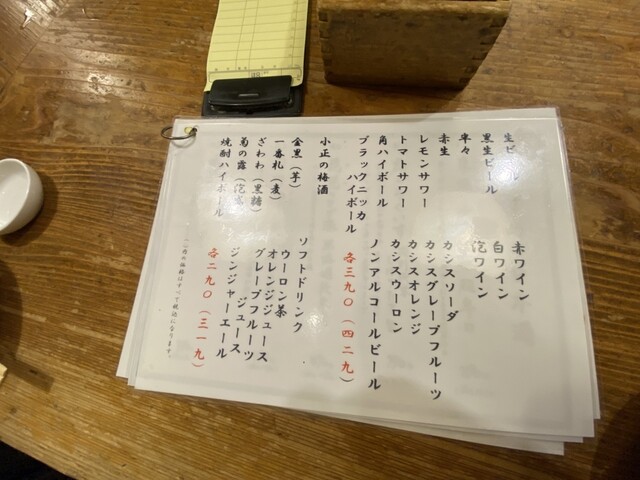 生ビール
黒生ビール
半々
赤生
レモンサワー
トマトサワー
角ハイボール
ブラックニッカ
ハイボール
小正の梅酒
金黒（芋）
一番札（麦）
ざわわ（黒糖）
菊の露（泡盛）
焼酎ハイボール
赤ワイン
白ワイン
泡ワイン
カシスソーダ
カシスグレープフルーツ
カシスオレンジ
カシスウーロン
ノンアルコールビール
各三九〇（四二九）
ソフトドリンク
ウーロン茶
オレンジジュース
グレープフルーツ
ジュース
ジンジャーエール
各二九〇（三一九）
内の価格はすべて税込になります。